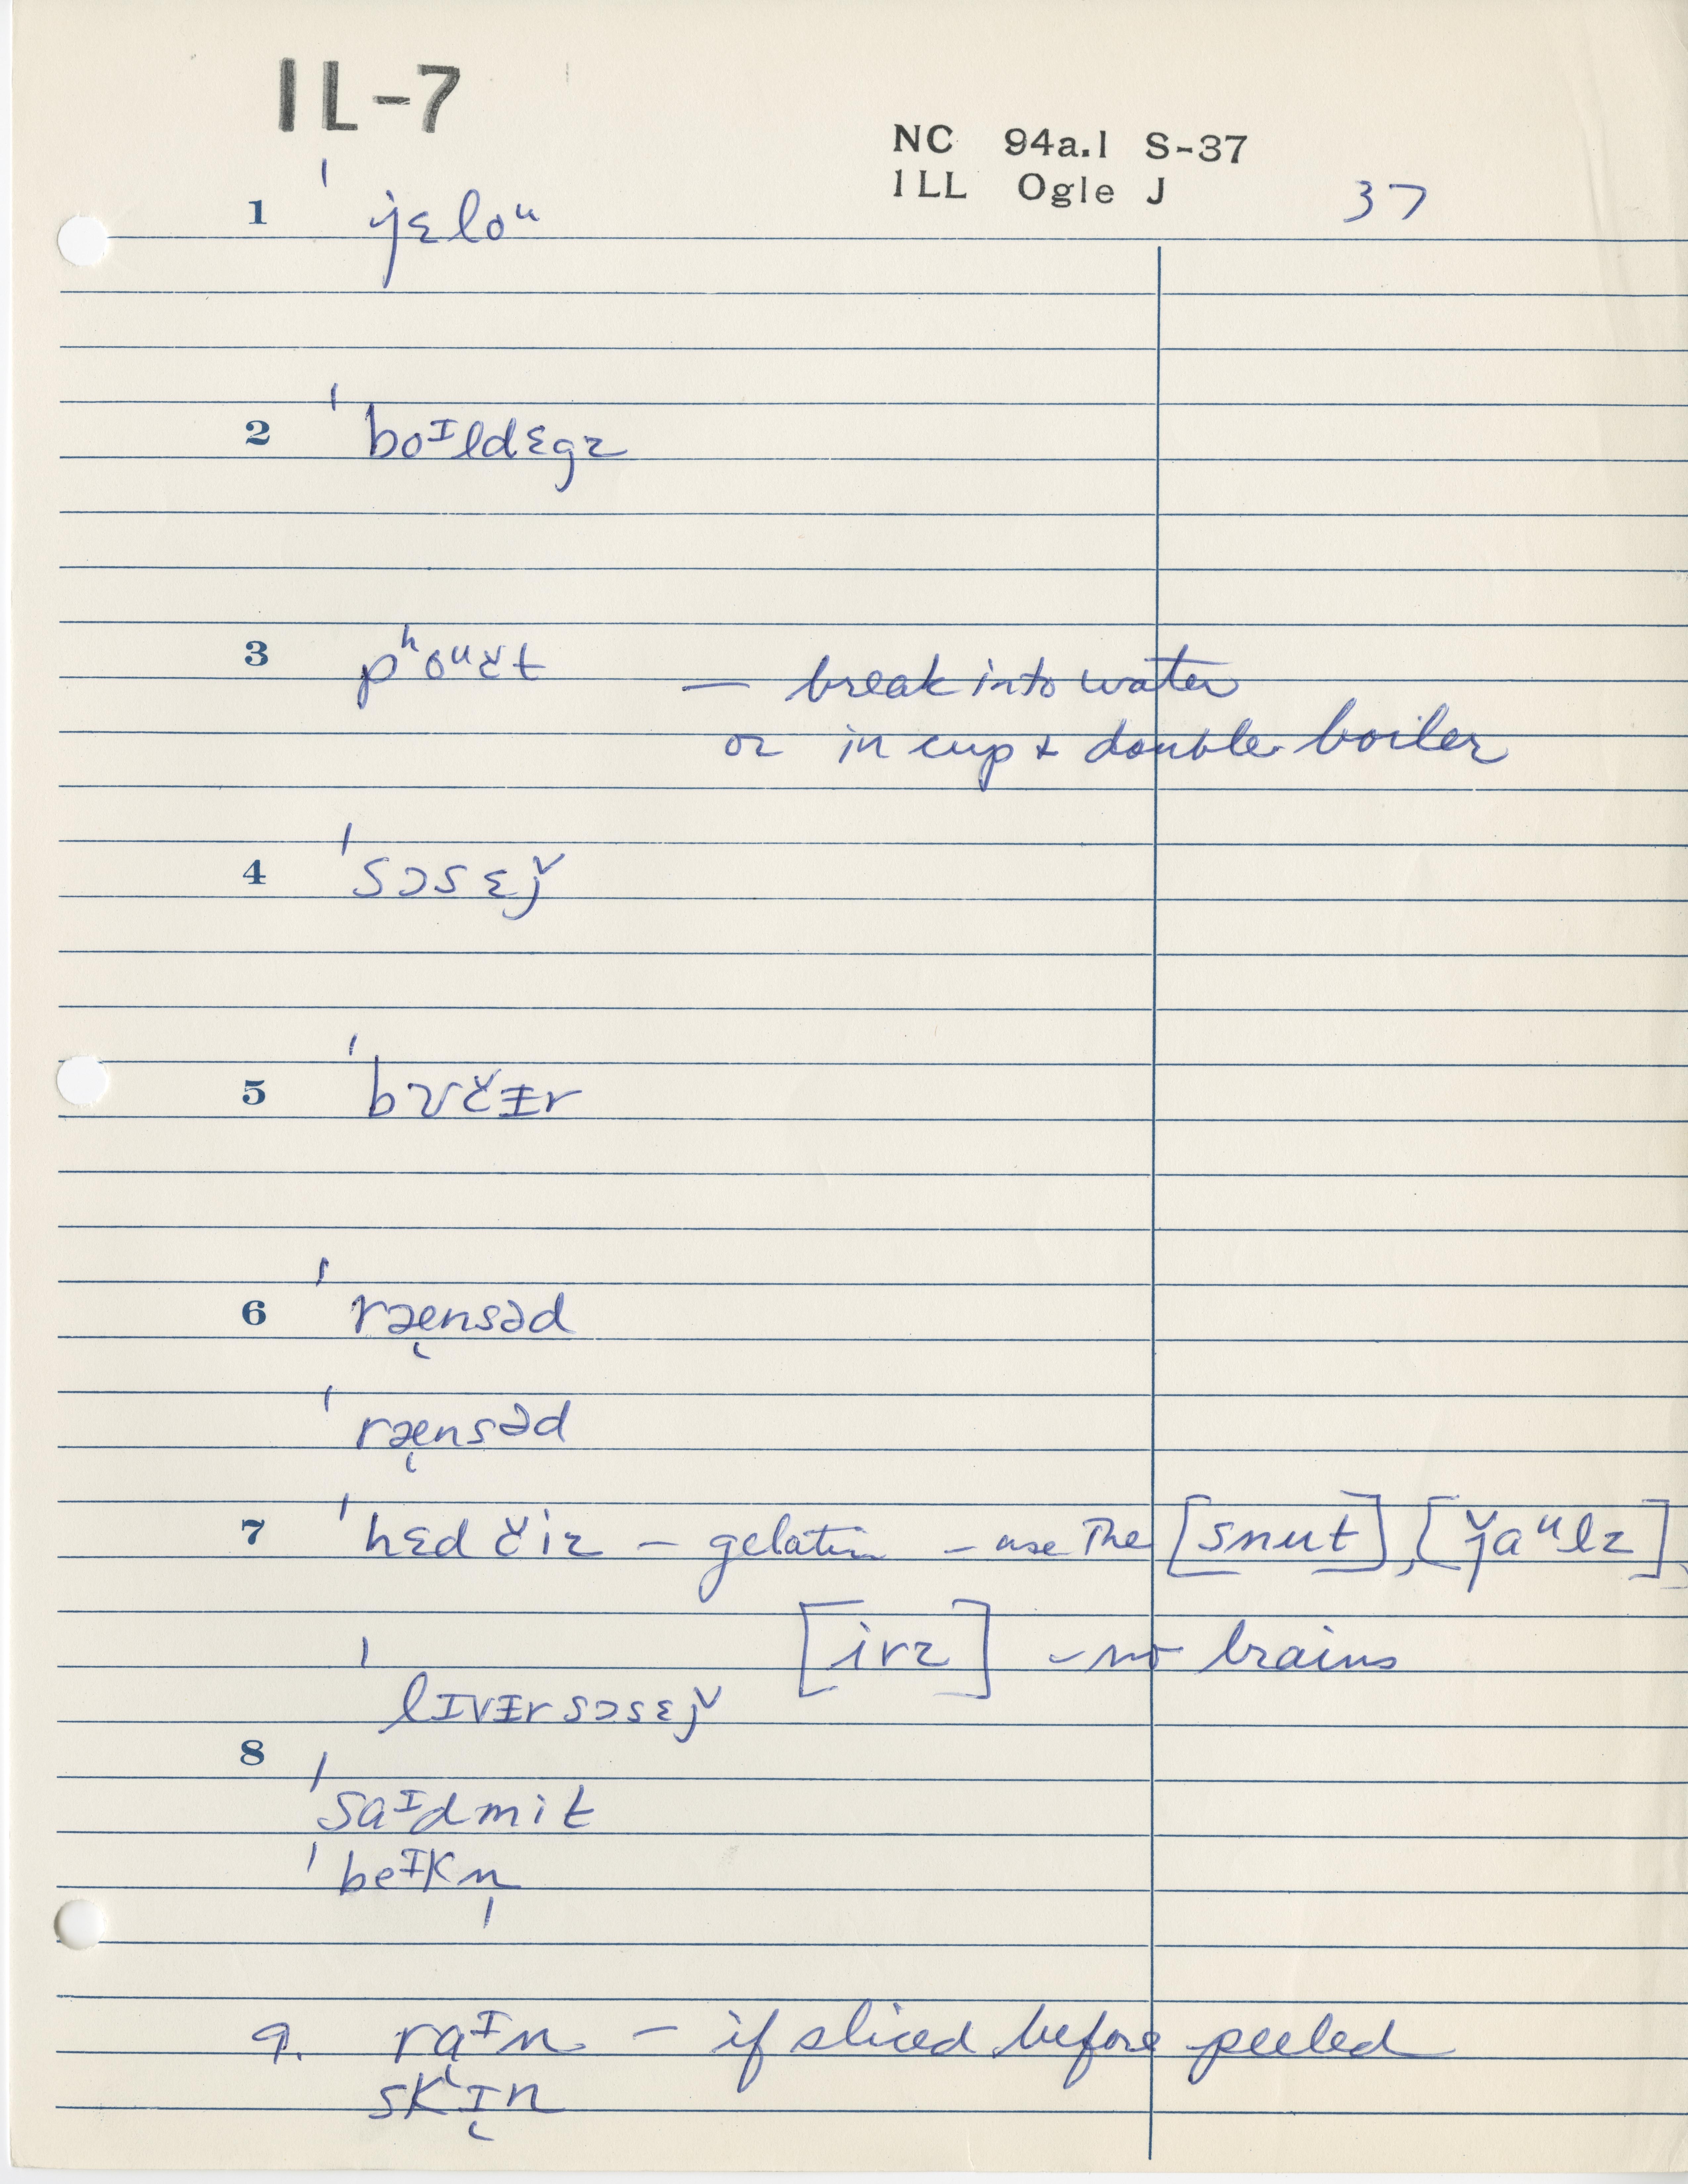 IL-7
NC 94a.1 S-37
ILL Ogle J 37
1 ˈjɛloᵘ
2 ˈboᴵldɛgz
3 pʰoᵘčt — break into water
or in cup & double boiler
4 ˈsɔsɛǰ
5 ˈbʊčɪ̵r
6 ˈræ̨nsəd
ˈræ̨nsəd
7 ˈhɛdčiz — gelatin — use the [snut], [ǰaᵘlz],
[irz] — no brains
ˈlɪvɪ̵rsɔsɛǰ
8
ˈsaᴵdmit
ˈbeᴵkn̩
9. rąᴵn — if sliced before peeled
skɪ̨n